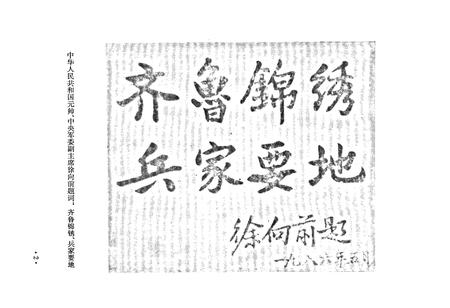 齐魯錦绣
兵家要地
徐向前题
一九八六年五月
中华人民共和国元帅、中央军委副主席徐向前题词：齐鲁锦绣，兵家要地
·2·